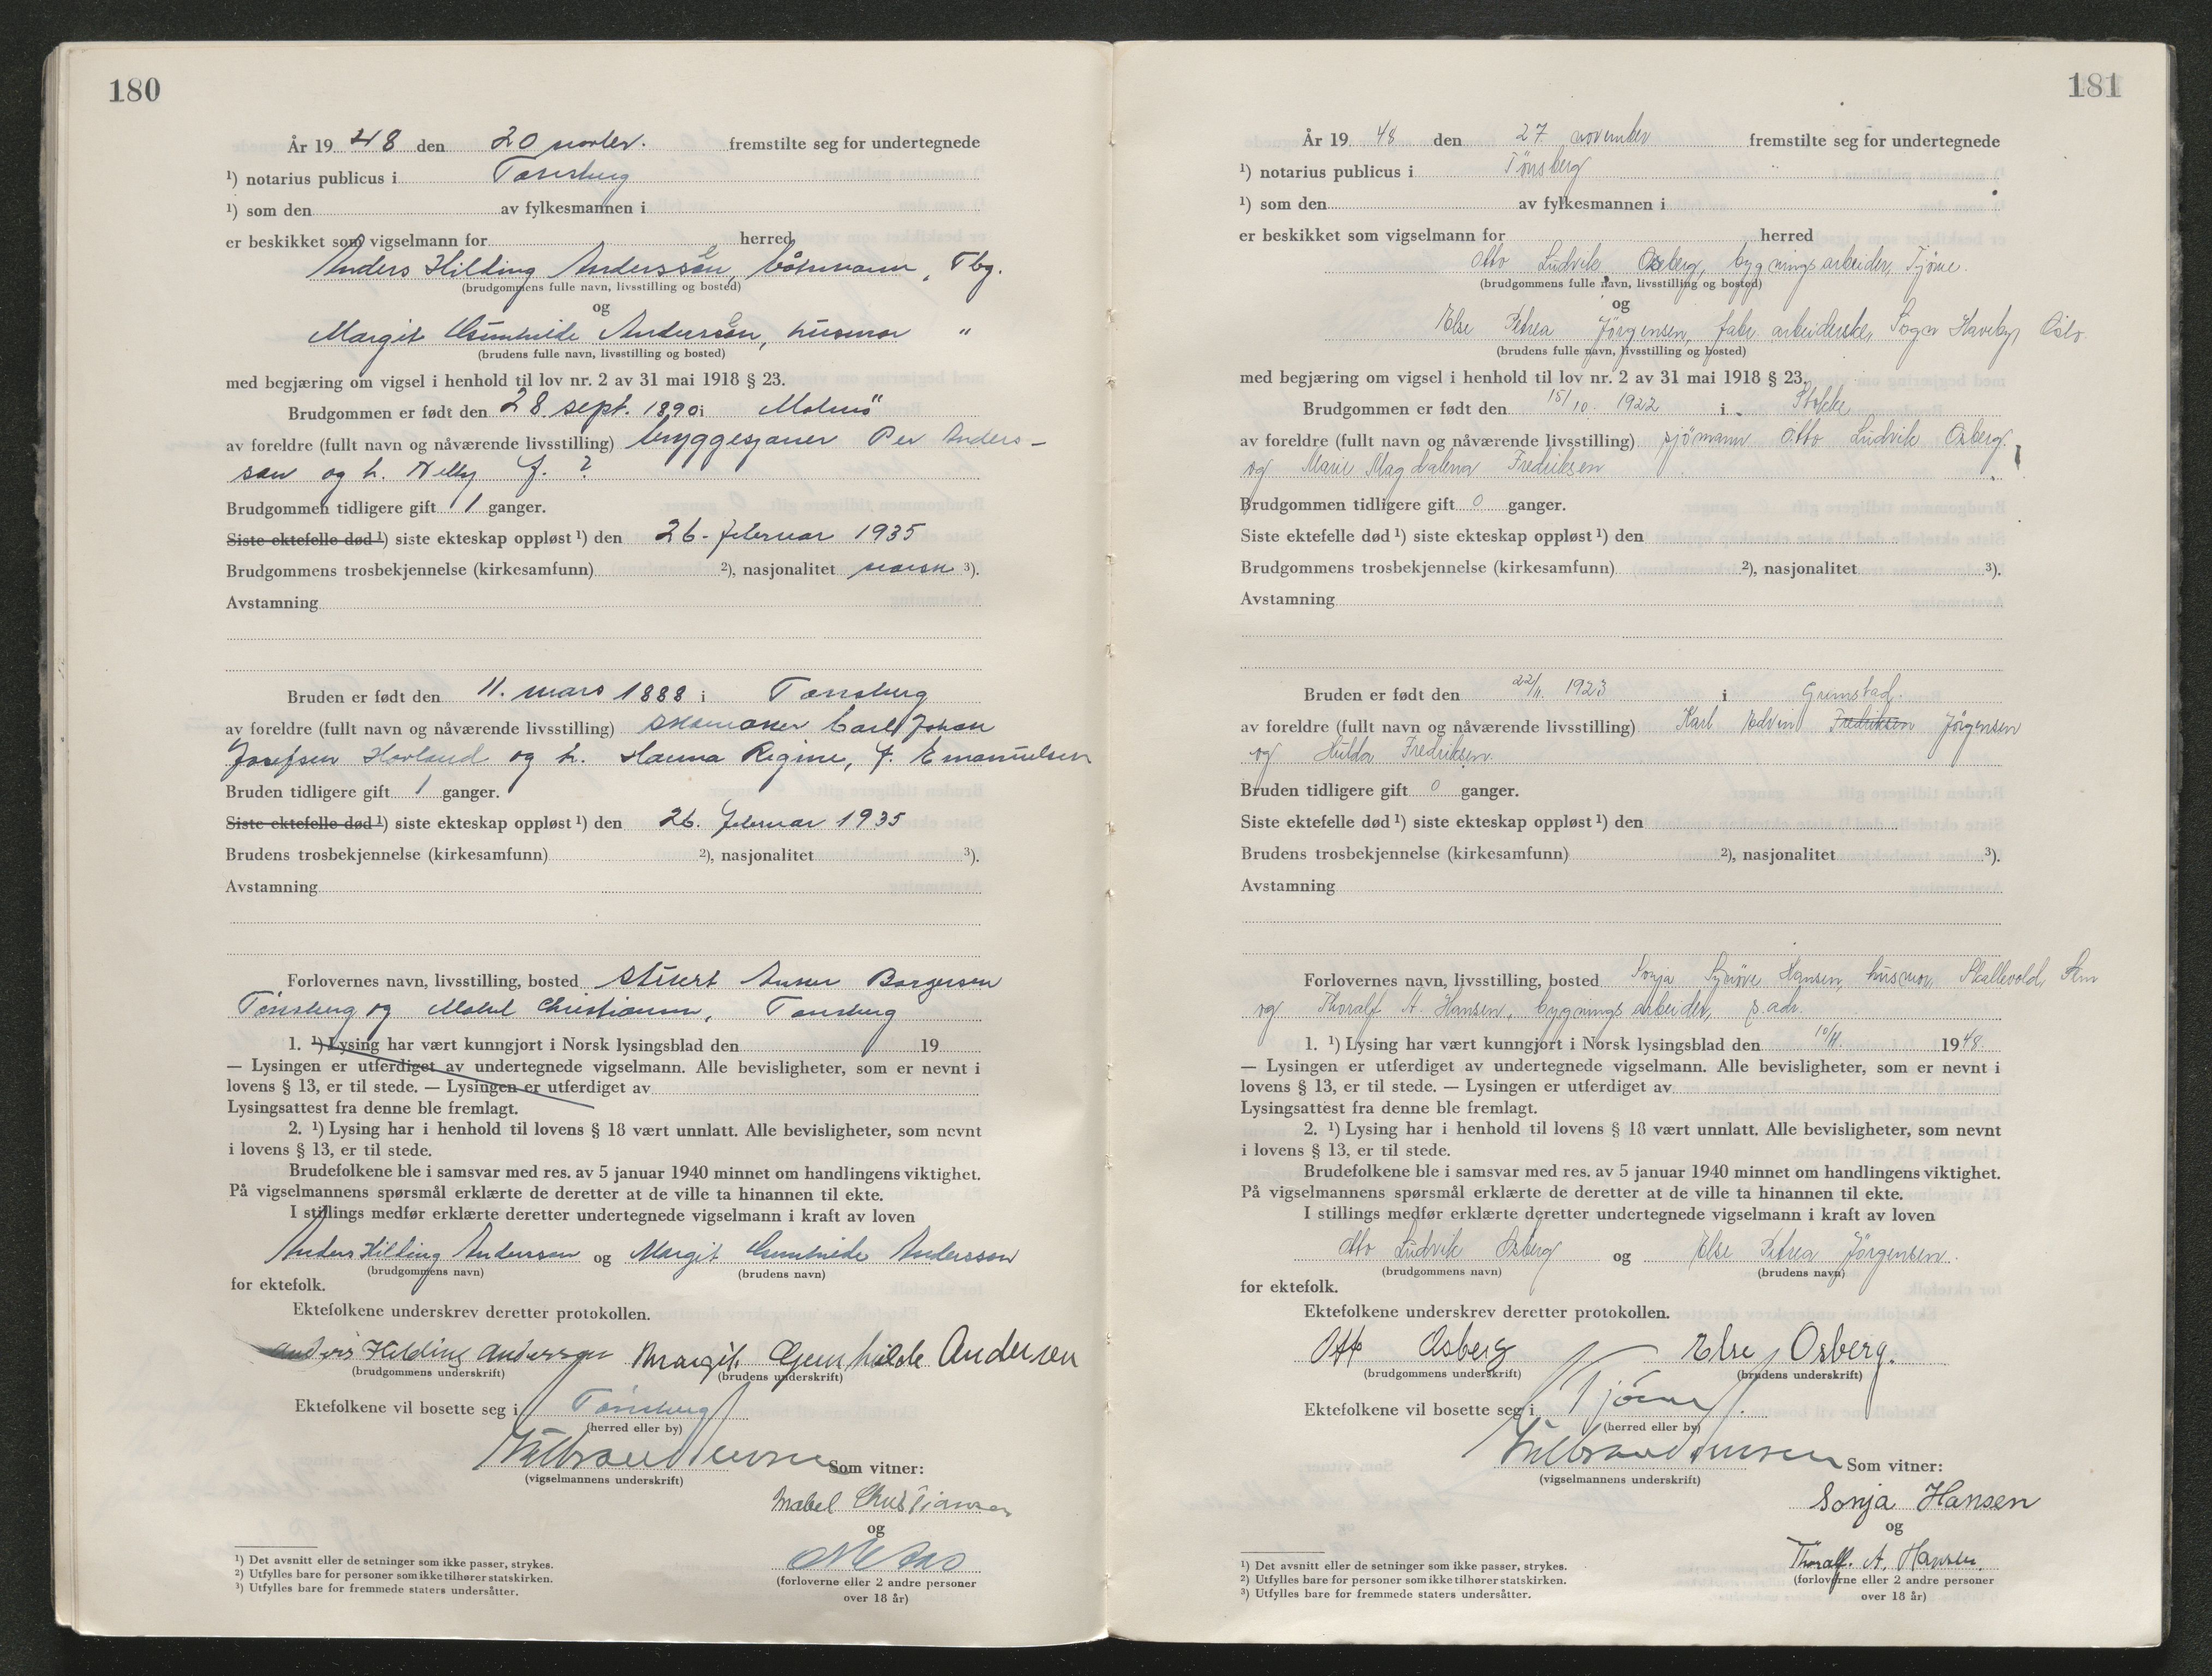 180
År 19 48 den 20 novbr. fremstilte seg for undertegnede
¹) notarius publicus i Tønsberg
¹) som den av fylkesmannen i
er beskikket som vigselmann for herred
Anders Hilding Andersson, båtsmann, Tbg.
(brudgommens fulle navn, livsstilling og bosted)
og
Margit Gunhilde Andersson, husmor "
(brudens fulle navn, livsstilling og bosted)
med begjæring om vigsel i henhold til lov nr. 2 av 31 mai 1918 § 23.
Brudgommen er født den 28 sept. 1890 i Malmö
av foreldre (fullt navn og nåværende livsstilling) bryggesjauer Per Anders-
son og h. Nelly f. ?
Brudgommen tidligere gift 1 ganger.
Siste ektefelle død ¹) siste ekteskap oppløst ¹) den 26. februar 1935
Brudgommens trosbekjennelse (kirkesamfunn) ²), nasjonalitet norsk ³).
Avstamning
Bruden er født den 11. mars 1888 i Tønsberg
av foreldre (fullt navn og nåværende livsstilling) skomaker Carl Johan
Josefsen Hovland og h. Hanna Regine, f. Emanuelsen
Bruden tidligere gift 1 ganger.
Siste ektefelle død ¹) siste ekteskap oppløst ¹) den 26. februar 1935
Brudens trosbekjennelse (kirkesamfunn) ²), nasjonalitet ³).
Avstamning
Forlovernes navn, livsstilling, bosted Borgersen
Tønsberg og Mabel Christiansen, Tønsberg
1. ¹) Lysing har vært kunngjort i Norsk lysingsblad den 19
— Lysingen er utferdiget av undertegnede vigselmann. Alle bevisligheter, som er nevnt i
lovens § 13, er til stede. — Lysingen er utferdiget av
Lysingsattest fra denne ble fremlagt.
2. ¹) Lysing har i henhold til lovens § 18 vært unnlatt. Alle bevisligheter, som nevnt
i lovens § 13, er til stede.
Brudefolkene ble i samsvar med res. av 5 januar 1940 minnet om handlingens viktighet.
På vigselmannens spørsmål erklærte de deretter at de ville ta hinannen til ekte.
I stillings medfør erklærte deretter undertegnede vigselmann i kraft av loven
Anders Hilding Andersson og Margit Gunhilde Andersson
(brudgommens navn) (brudens navn)
for ektefolk.
Ektefolkene underskrev deretter protokollen.
Anders Hilding Andersson Margit Gunhilde Andersen
(brudgommens underskrift) (brudens underskrift)
Ektefolkene vil bosette seg i Tønsberg
(herred eller by)
Som vitner:
(vigselmannens underskrift)
Mabel Christiansen
og
(forloverne eller 2 andre personer
over 18 år)
¹) Det avsnitt eller de setninger som ikke passer, strykes.
²) Utfylles bare for personer som ikke tilhører statskirken.
³) Utfylles bare for fremmede staters undersåtter.
181
År 19 48 den 27. november fremstilte seg for undertegnede
¹) notarius publicus i Tönsberg
¹) som den av fylkesmannen i
er beskikket som vigselmann for herred
Otto Ludvik Osberg, bygningsarbeider, Tjöme.
(brudgommens fulle navn, livsstilling og bosted)
og
Else Petrea Jörgensen, fabr. arbeiderske, Sogn Haveby, Oslo.
(brudens fulle navn, livsstilling og bosted)
med begjæring om vigsel i henhold til lov nr. 2 av 31 mai 1918 § 23.
Brudgommen er født den 15/10. 1922 i Stokke
av foreldre (fullt navn og nåværende livsstilling) sjömann Otto Ludvik Osberg.
og Marie Magdalena Fredriksen
Brudgommen tidligere gift 0 ganger.
Siste ektefelle død ¹) siste ekteskap oppløst ¹) den
Brudgommens trosbekjennelse (kirkesamfunn) ²), nasjonalitet ³).
Avstamning
Bruden er født den 22/11. 1923 i Grimstad.
av foreldre (fullt navn og nåværende livsstilling) Karl Edvin Fredriksen Jörgensen
og Hilda Fredriksen.
Bruden tidligere gift 0 ganger.
Siste ektefelle død ¹) siste ekteskap oppløst ¹) den
Brudens trosbekjennelse (kirkesamfunn) ²), nasjonalitet ³).
Avstamning
Forlovernes navn, livsstilling, bosted Sonja Synöve Hansen, husmor, Skallevold, Sem
og Thoralf A. Hansen, bygningsarbeider, s. adr.
1. ¹) Lysing har vært kunngjort i Norsk lysingsblad den 10/11. 1948.
— Lysingen er utferdiget av undertegnede vigselmann. Alle bevisligheter, som er nevnt i
lovens § 13, er til stede. — Lysingen er utferdiget av
Lysingsattest fra denne ble fremlagt.
2. ¹) Lysing har i henhold til lovens § 18 vært unnlatt. Alle bevisligheter, som nevnt
i lovens § 13, er til stede.
Brudefolkene ble i samsvar med res. av 5 januar 1940 minnet om handlingens viktighet.
På vigselmannens spørsmål erklærte de deretter at de ville ta hinannen til ekte.
I stillings medfør erklærte deretter undertegnede vigselmann i kraft av loven
Otto Ludvik Osberg og Else Petrea Jörgensen.
(brudgommens navn) (brudens navn)
for ektefolk.
Ektefolkene underskrev deretter protokollen.
Otto Osberg Else Osberg.
(brudgommens underskrift) (brudens underskrift)
Ektefolkene vil bosette seg i Tjöme.
(herred eller by)
Som vitner:
(vigselmannens underskrift)
Sonja Hansen
og
Thoralf. A. Hansen.
(forloverne eller 2 andre personer
over 18 år)
¹) Det avsnitt eller de setninger som ikke passer, strykes.
²) Utfylles bare for personer som ikke tilhører statskirken.
³) Utfylles bare for fremmede staters undersåtter.